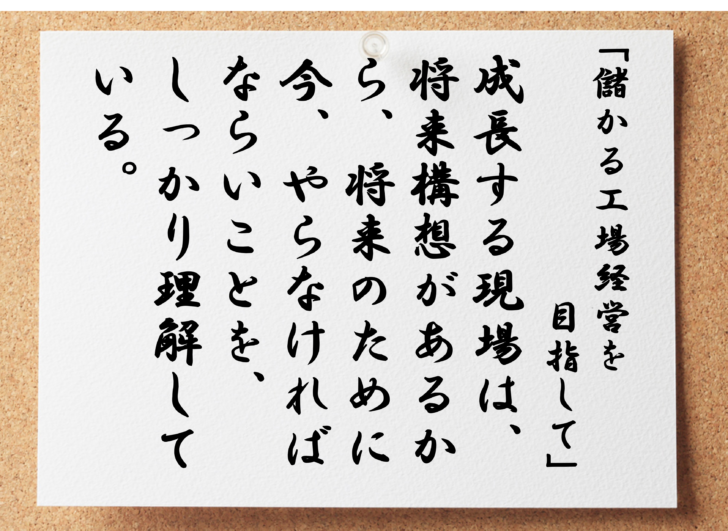 「儲かる工場経営を
目指して」
成長する現場は、
将来構想があるか
ら、将来のために
今、やらなければ
ならいことを、
しっかり理解して
いる。